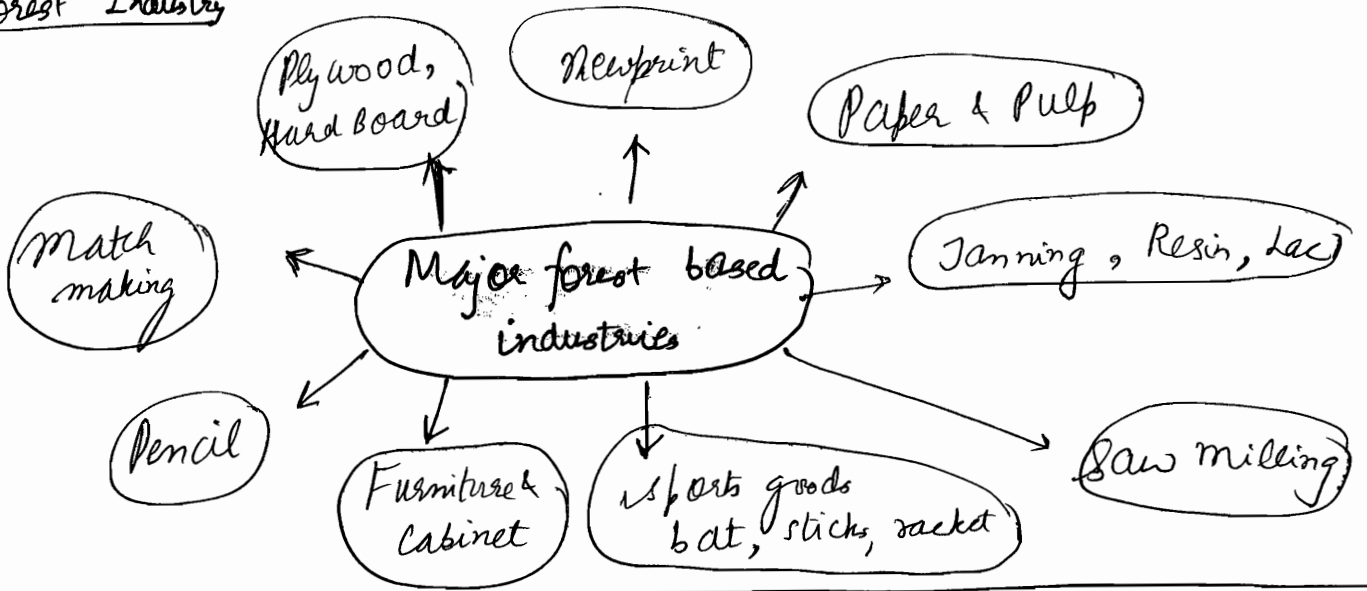 Forest Industry
Plywood,
Hard Board
Newprint
Paper & Pulp
Match
making
Major forest based
industries
Tanning, Resin, Lac
Pencil
Furniture &
Cabinet
sports goods
bat, sticks, racket
Saw milling